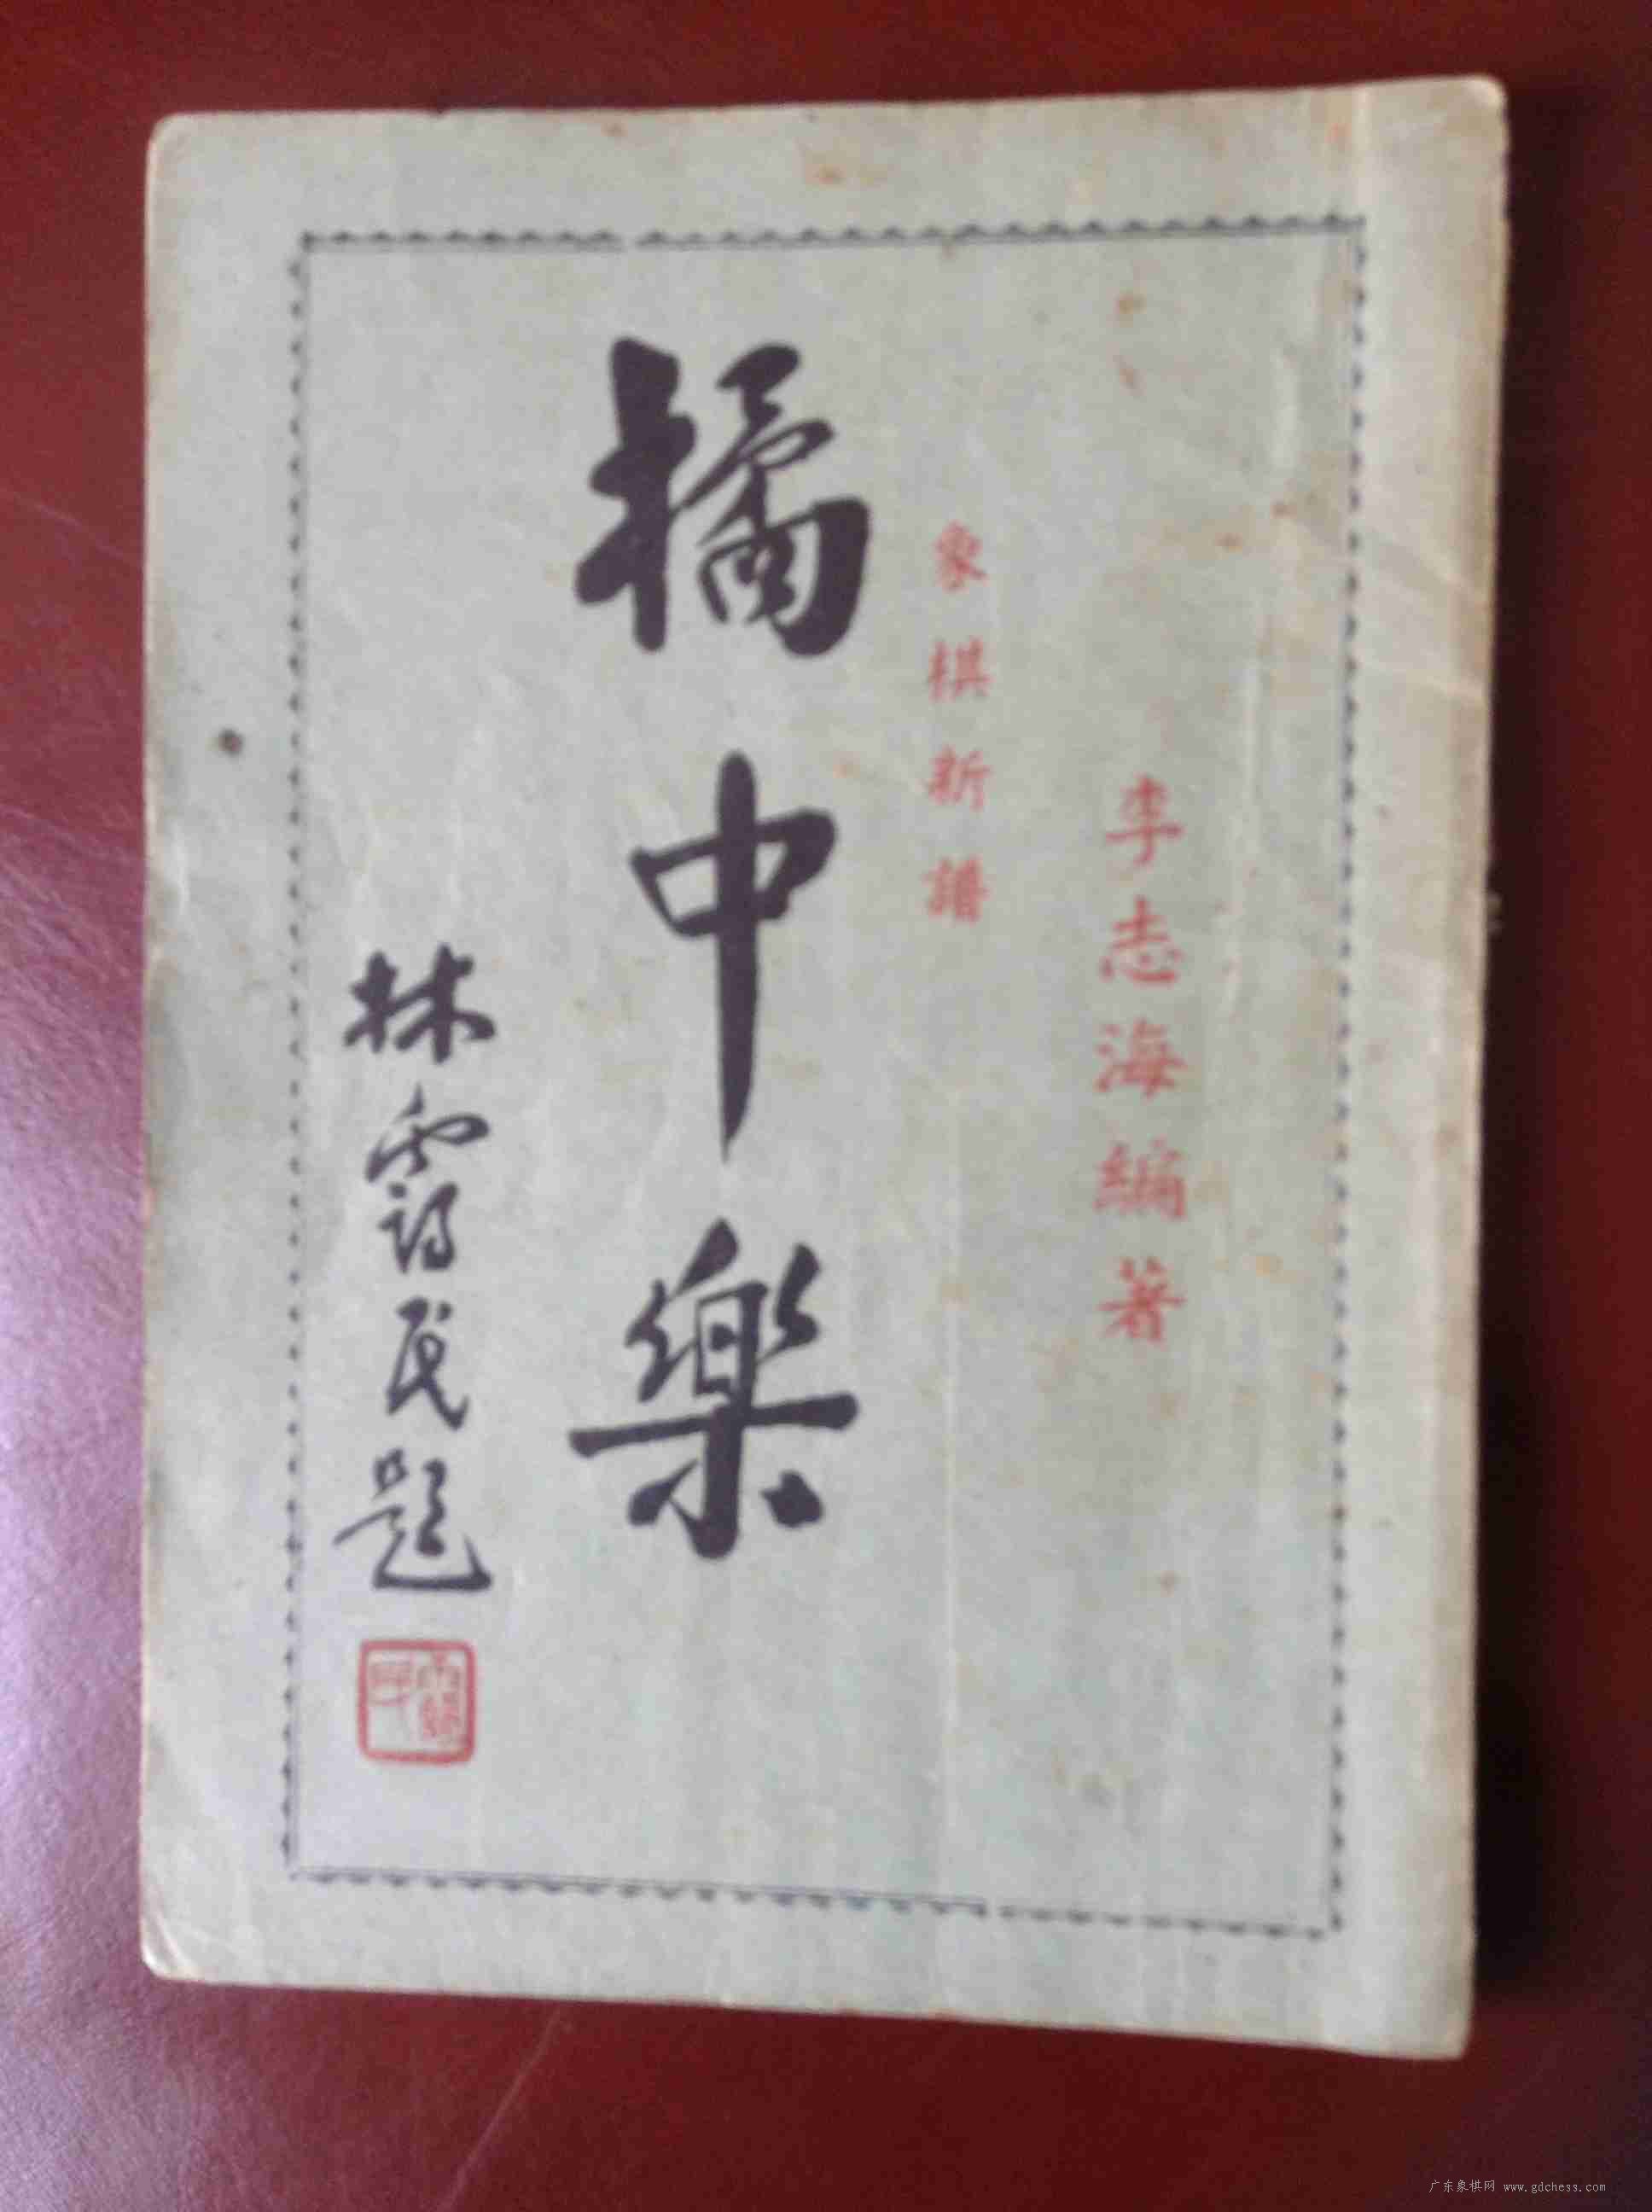 李志海編著
象棋新譜
橘中樂
林靄民題
广东象棋网 www.gdchess.com